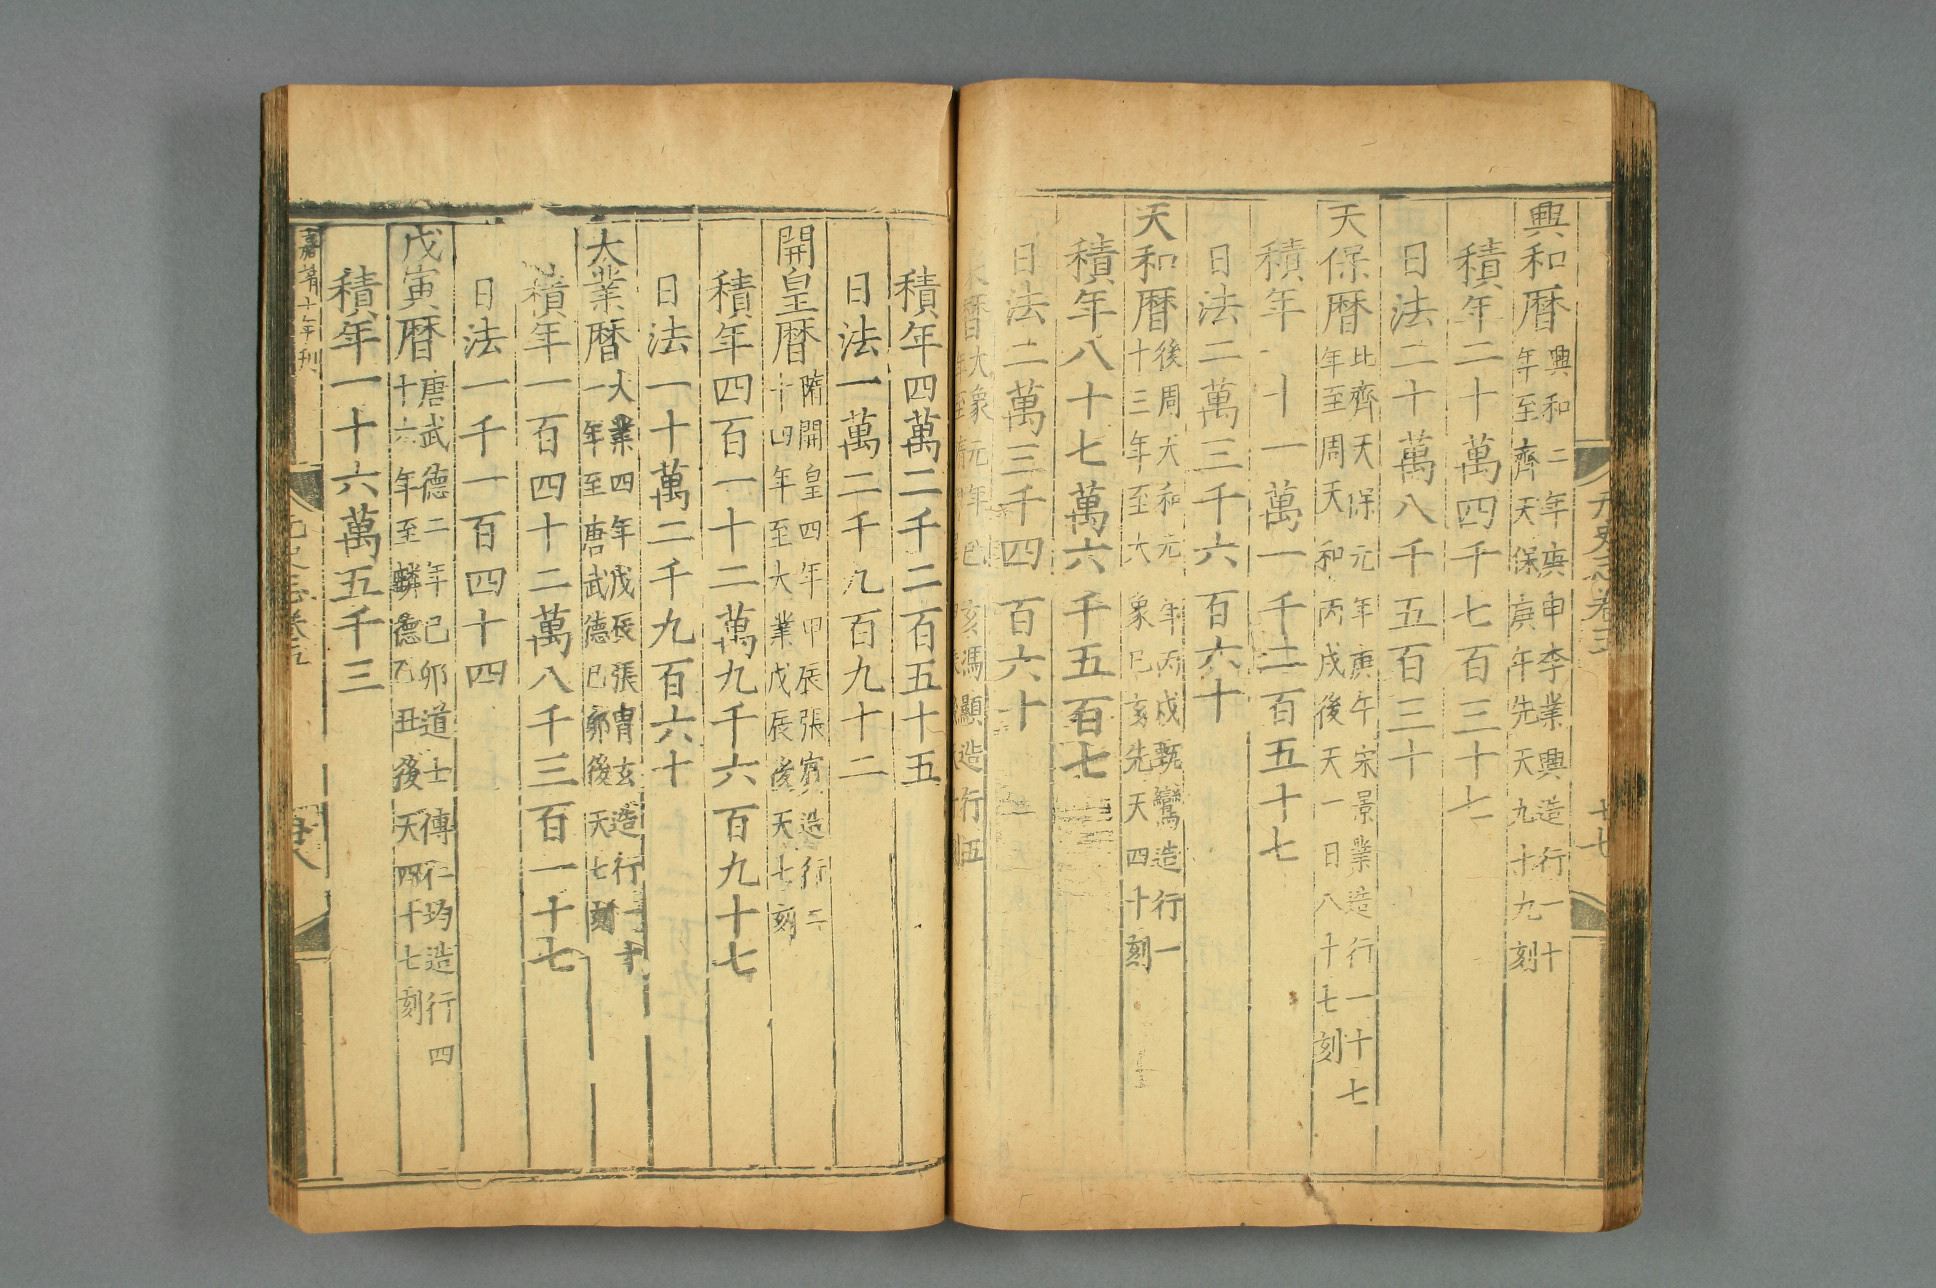 元史志卷五
十七
興和曆興和二年庚申李業興造行一十
年至齊天保庚午先天九十九刻
積年二十萬四千七百三十七
日法二十萬八千五百三十
天保曆北齊天保元年庚午宋景業造行一十七
年至周天和丙戌後天一日八十七刻
積年一十一萬一千二百五十七
日法二萬三千六百六十
天和曆後周天和元年丙戌甄鸞造行一
十三年至大象己亥先天四十刻
積年八十七萬六千五百七
日法二萬三千四百六十
曆大象元年己亥馮顯造行五
積年四萬二千二百五十五
日法一萬二千九百九十二
開皇曆隋開皇四年甲辰張賓造行二
十四年至大業戊辰後天七刻
積年四百一十二萬九千六百九十七
日法一十萬二千九百六十
大業曆大業四年戊辰張胄玄造行一十
一年至唐武德己卯後天七刻
積年一百四十二萬八千三百一十七
日法一千一百四十四
戊寅曆唐武德二年己卯道士傅仁均造行四
十六年至麟德乙丑後天四十七刻
積年一十六萬五千三
嘉靖十年刊
元史志卷五